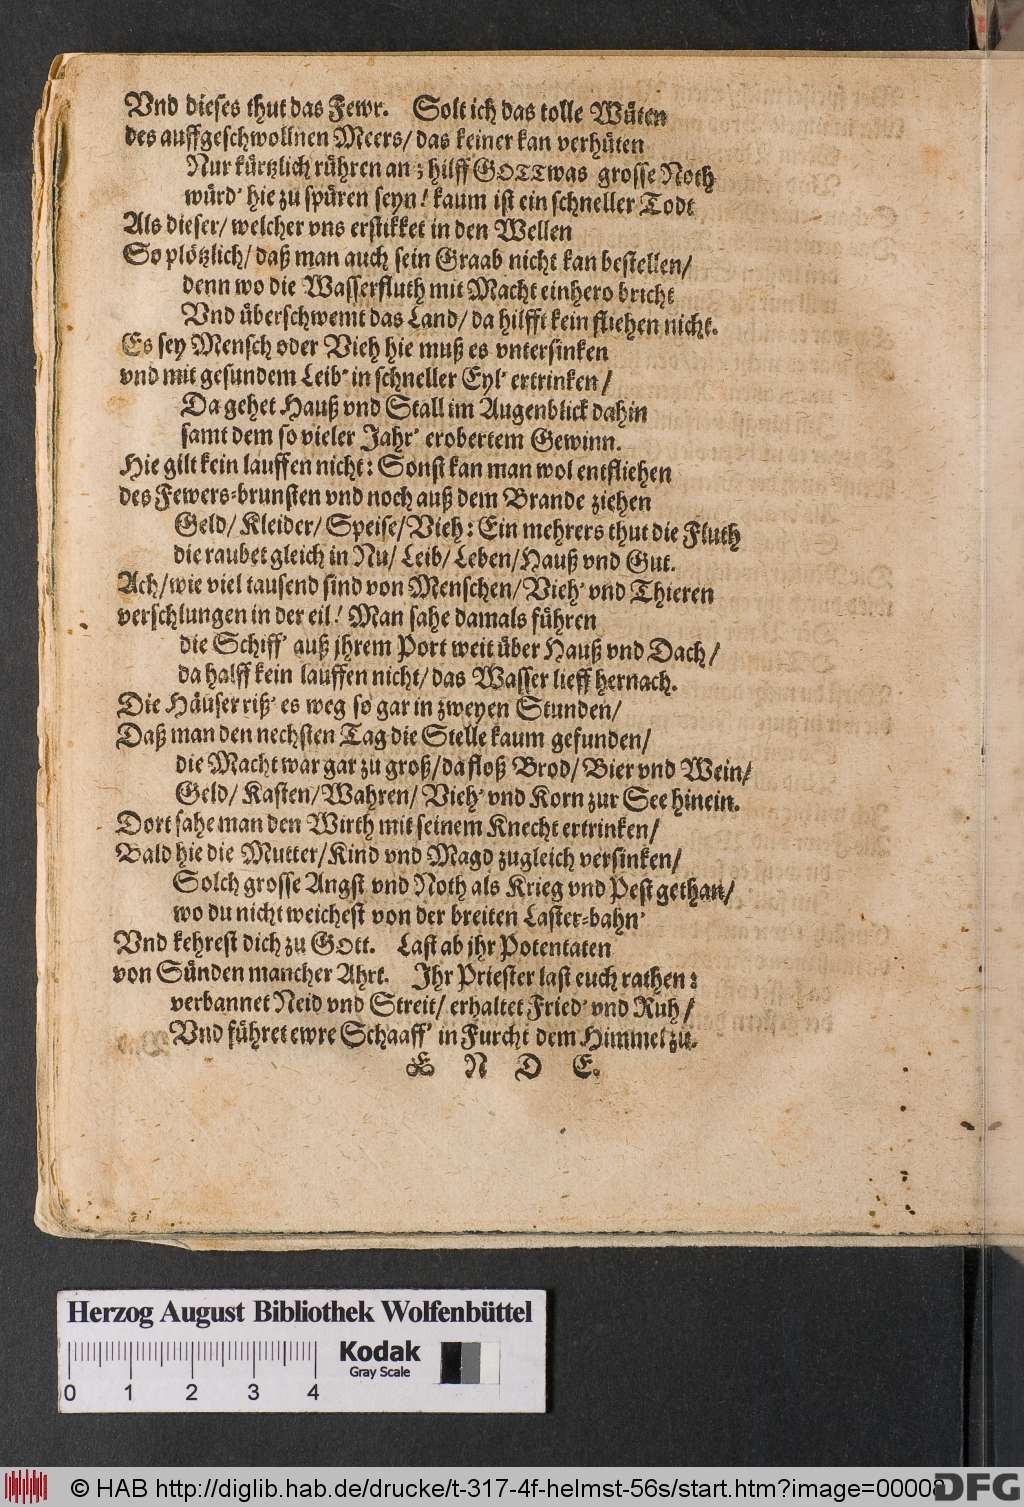 Vnd dieses thut das Fewr. Solt ich das tolle Wüten
des auffgeschwollnen Meers/ das keiner kan verhüten
Nur kürtzlich rühren an; hilff GOTT was grosse Noth
würd' hie zu spüren seyn! kaum ist ein schneller Todt
Als dieser/ welcher vns erstikket in den Wellen
So plötzlich/ daß man auch sein Graab nicht kan bestellen/
denn wo die Wasserfluth mit Macht einhero bricht
Vnd überschwemt das Land/ da hilfft kein fliehen nicht.
Es sey Mensch oder Vieh hie muß es vntersinken
vnd mit gesundem Leib' in schneller Eyl' ertrinken/
Da gehet Hauß vnd Stall im Augenblick dahin
samt dem so vieler Jahr' erobertem Gewinn.
Hie gilt kein lauffen nicht: Sonst kan man wol entfliehen
des Fewers-brunsten vnd noch auß dem Brande ziehen
Geld/ Kleider/ Speise/ Vieh: Ein mehrers thut die Fluth
die raubet gleich in Nu/ Leib/ Leben/ Hauß vnd Gut.
Ach/ wie viel tausend sind von Menschen/ Vieh' vnd Thieren
verschlungen in der eil! Man sahe damals führen
die Schiff' auß jhrem Port weit über Hauß vnd Dach/
da halff kein lauffen nicht/ das Wasser lieff hernach.
Die Häuser riß' es weg so gar in zweyen Stunden/
Daß man den nechsten Tag die Stelle kaum gefunden/
die Macht war gar zu groß/ da floß Brod/ Bier vnd Wein/
Geld/ Kasten/ Wahren/ Vieh' vnd Korn zur See hinein.
Dort sahe man den Wirth mit seinem Knecht ertrinken/
Bald hie die Mutter/ Kind vnd Magd zugleich versinken/
Solch grosse Angst vnd Noth als Krieg vnd Pest gethan/
wo du nicht weichest von der breiten Laster-bahn'
Vnd kehrest dich zu GOtt. Last ab jhr Potentaten
von Sünden mancher Ahrt. Jhr Priester last euch rathen:
verbannet Neid vnd Streit/ erhaltet Fried' vnd Ruh/
Vnd führet ewre Schaaff' in Furcht dem Himmel zu.
E N D E.
Herzog August Bibliothek Wolfenbüttel
Kodak
Gray Scale
0 1 2 3 4
© HAB http://diglib.hab.de/drucke/t-317-4f-helmst-56s/start.htm?image=00008
DFG